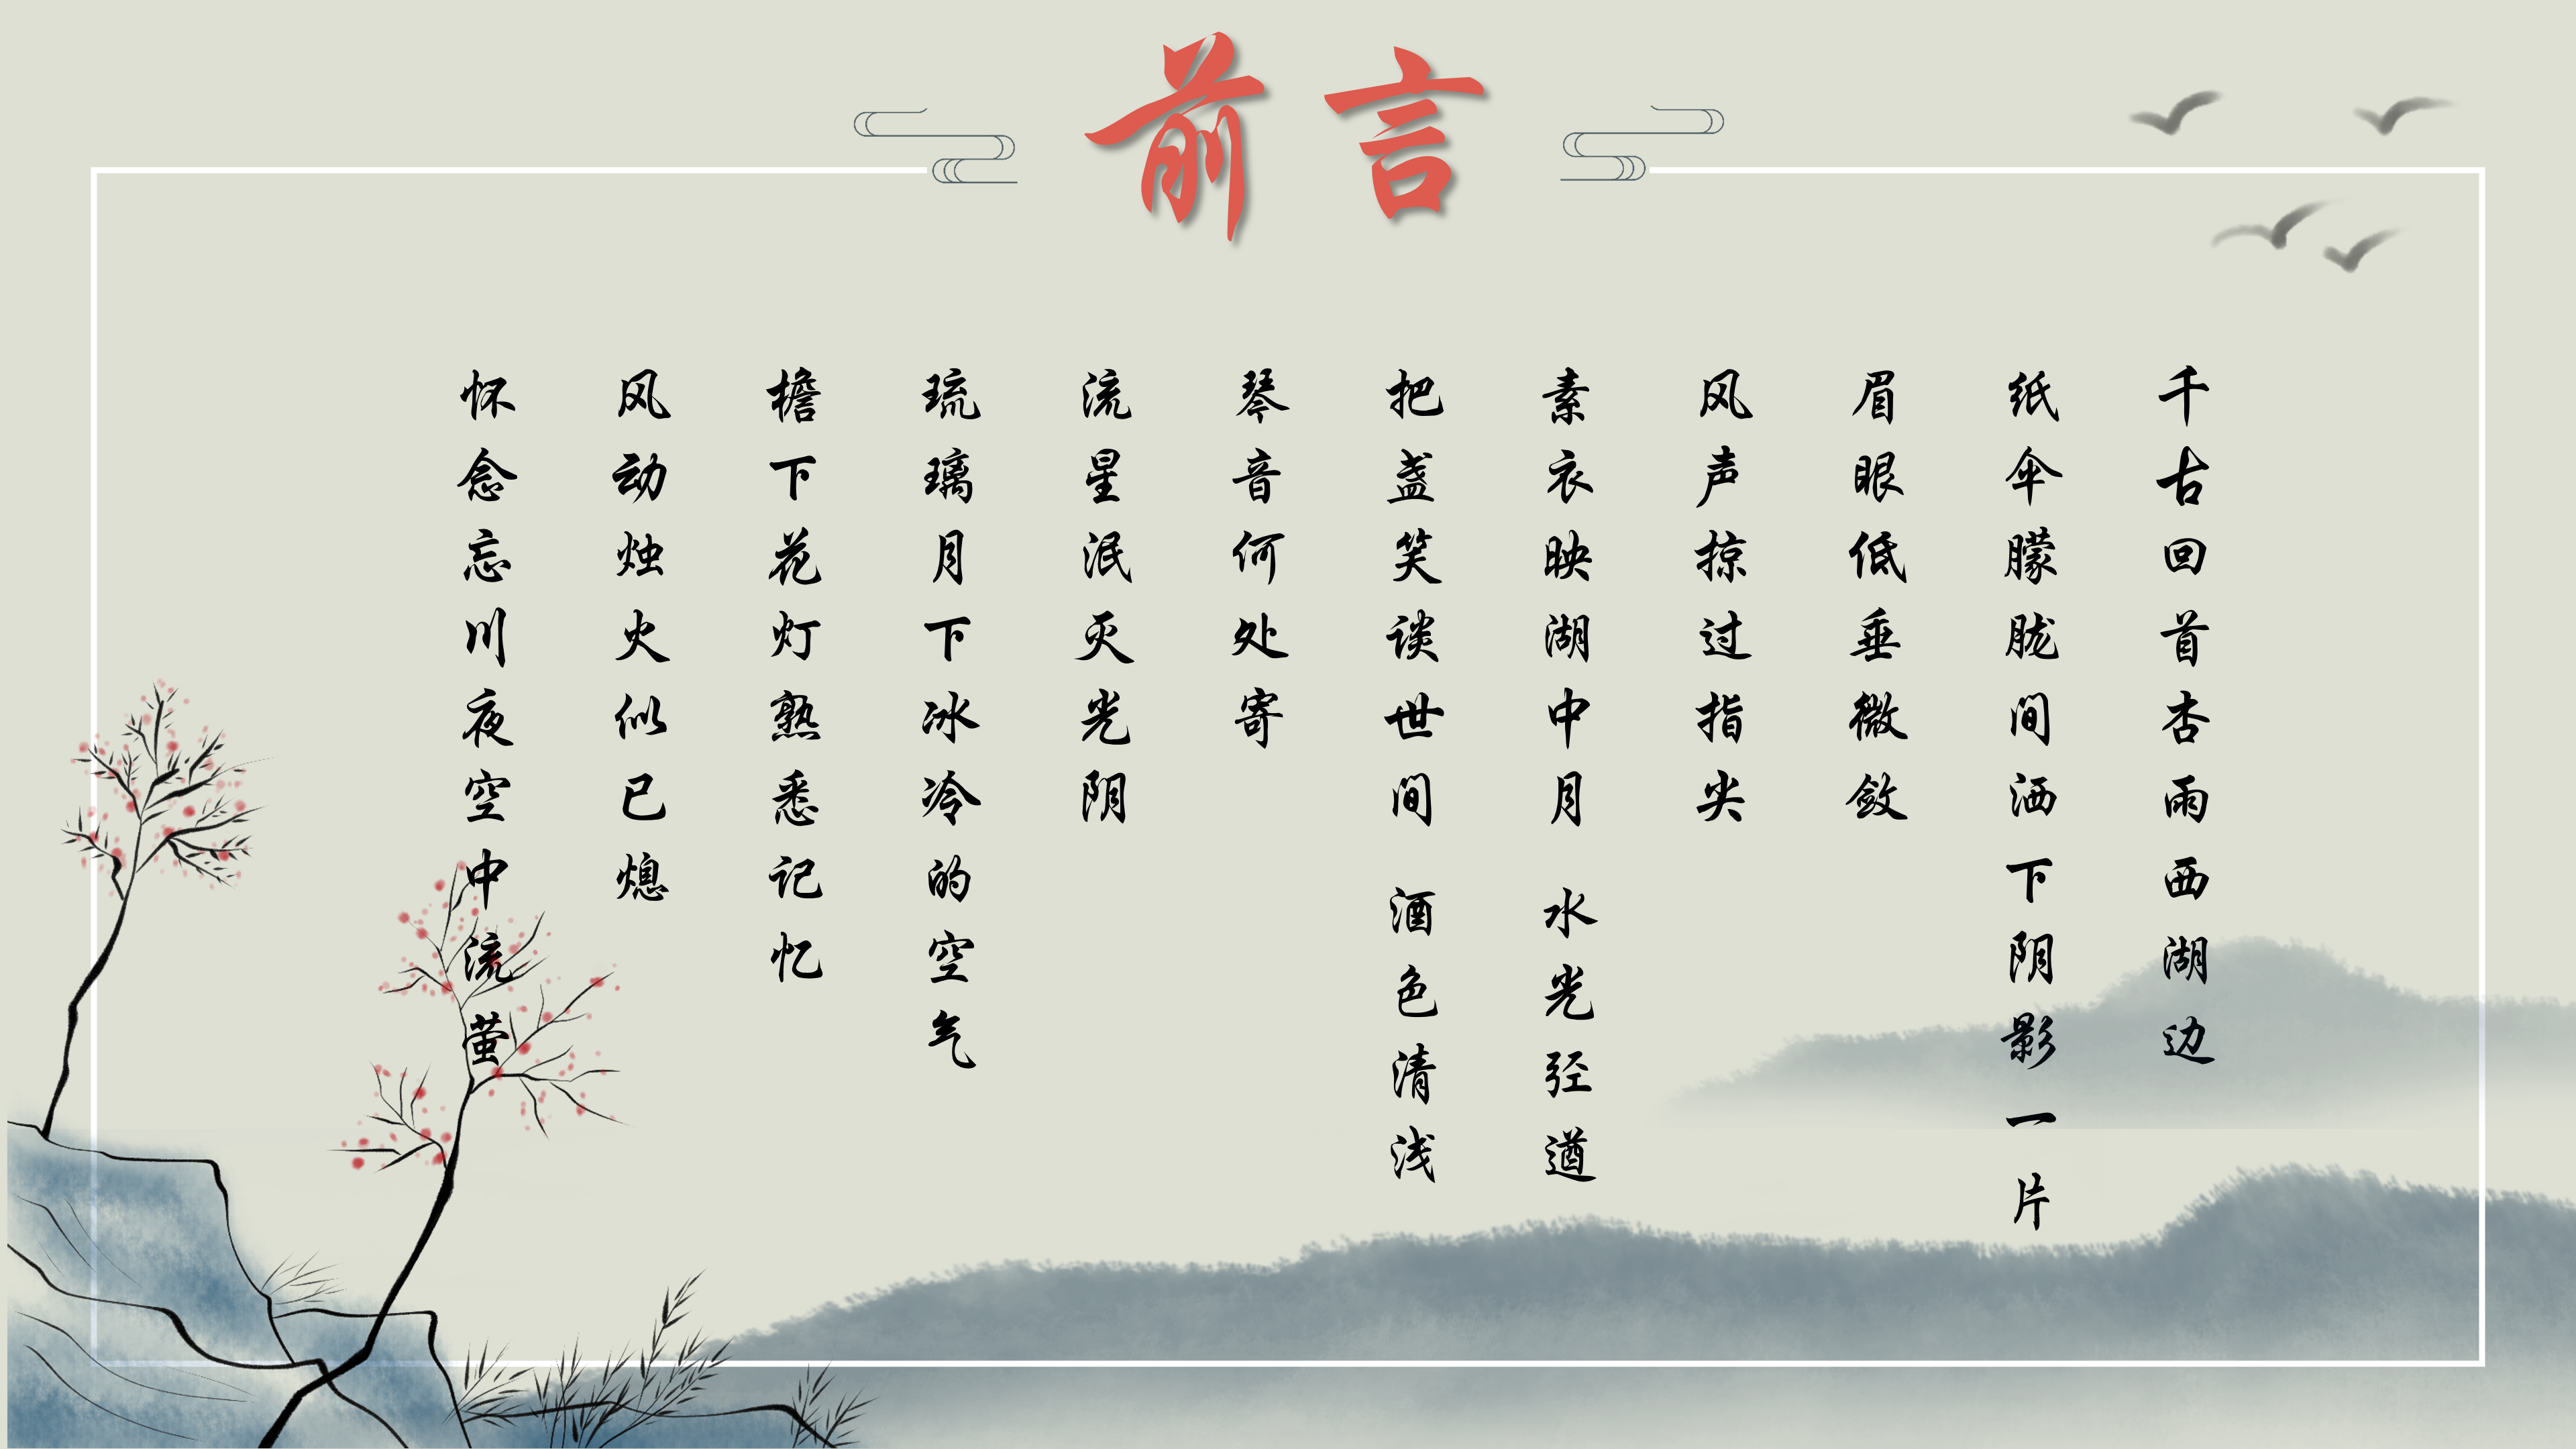 前言
千古回首杏雨西湖边
纸伞朦胧间洒下阴影一片
眉眼低垂微敛
风声掠过指尖
素衣映湖中月 水光径遒
把盏笑谈世间 酒色清浅
琴音何处寄
流星泯灭光阴
琉璃月下冰冷的空气
檐下花灯熟悉记忆
风动烛火似已熄
怀念忘川夜空中流萤